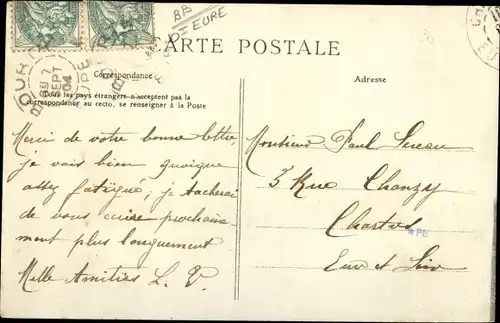 BB
D'EURE
CARTE POSTALE
Correspondance
Adresse
Tous les pays étrangers n'acceptent pas la
correspondance au recto, se renseigner à la Poste
7
SEPT
04
Merci de votre bonne lettre,
je vais bien quoique
assez fatigué; je tacherai
de vous écrire prochaine-
ment plus longuement
Mille Amitiés L. V.
Monsieur Paul
3 Rue Chanzy
Chartres
Eure et Loir
PE